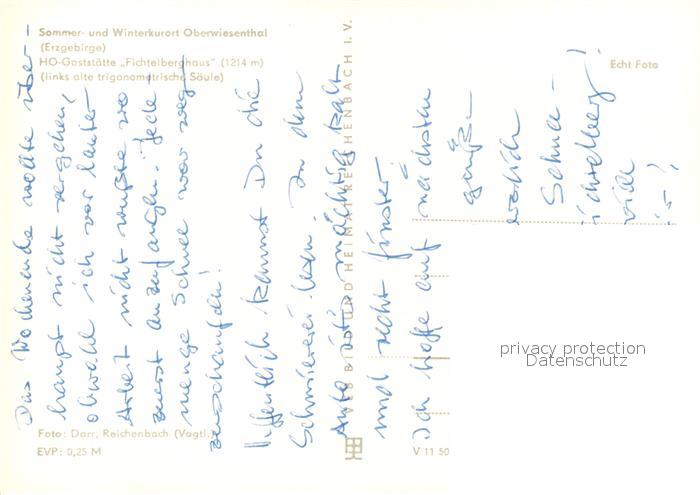 Sommer- und Winterkurort Oberwiesenthal
(Erzgebirge)
HO-Gaststätte „Fichtelberghaus" (1214 m)
(links alte trigonometrische Säule)
Echt Foto
Das Wochenende wollte über-
haupt nicht vergehen,
obwohl ich vor lauter
Arbeit nicht wußte wo
zuerst anzufangen. Jede
menge Schnee war weg
zuschaufeln!
Hoffentlich kannst Du die
Schmiererei lesen. In dem
Auto ist's mächtig kalt
und recht finster.
Ich hoffe auf
nächsten
Grüße
Schnee-
viele
VEB BILD UND HEIMAT REICHENBACH I. V.
Foto: Darr, Reichenbach (Vogtl.)
EVP: 0,25 M
V 11 50
privacy protection
Datenschutz